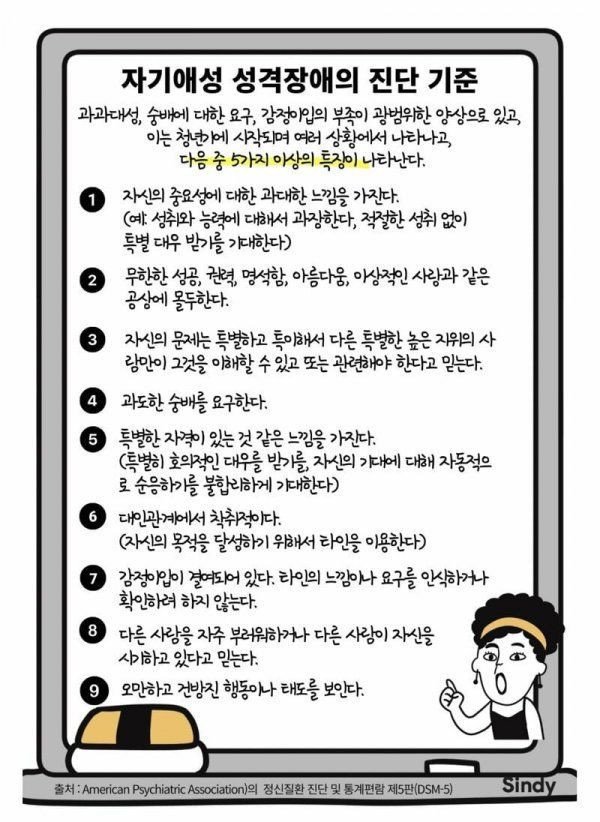 자기애성 성격장애의 진단 기준
과과대성, 숭배에 대한 요구, 감정이입의 부족이 광범위한 양상으로 있고,
이는 청년기에 시작되며 여러 상황에서 나타나고,
다음 중 5가지 이상의 특징이 나타난다.
1 자신의 중요성에 대한 과대한 느낌을 가진다.
(예: 성취와 능력에 대해서 과장한다, 적절한 성취 없이
특별 대우 받기를 기대한다)
2 무한한 성공, 권력, 명석함, 아름다움, 이상적인 사랑과 같은
공상에 몰두한다.
3 자신의 문제는 특별하고 특이해서 다른 특별한 높은 지위의 사
람만이 그것을 이해할 수 있고 또는 관련해야 한다고 믿는다.
4 과도한 숭배를 요구한다.
5 특별한 자격이 있는 것 같은 느낌을 가진다.
(특별히 호의적인 대우를 받기를, 자신의 기대에 대해 자동적으
로 순응하기를 불합리하게 기대한다)
6 대인관계에서 착취적이다.
(자신의 목적을 달성하기 위해서 타인을 이용한다)
7 감정이입이 결여되어 있다. 타인의 느낌이나 요구를 인식하거나
확인하려 하지 않는다.
8 다른 사람을 자주 부러워하거나 다른 사람이 자신을
시기하고 있다고 믿는다.
9 오만하고 건방진 행동이나 태도를 보인다.
출처 : American Psychiatric Association)의 정신질환 진단 및 통계편람 제5판(DSM-5)
Sindy